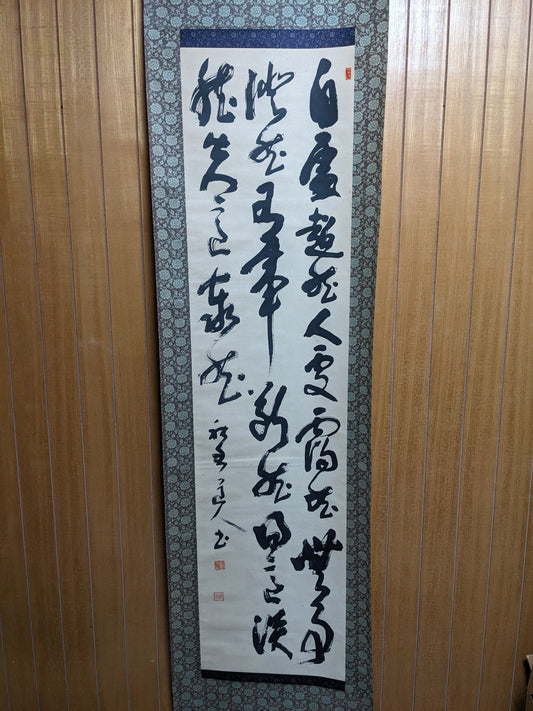 自處超然人處靄然無事
澄然有事斬然得意淡
然失意泰然
道人書